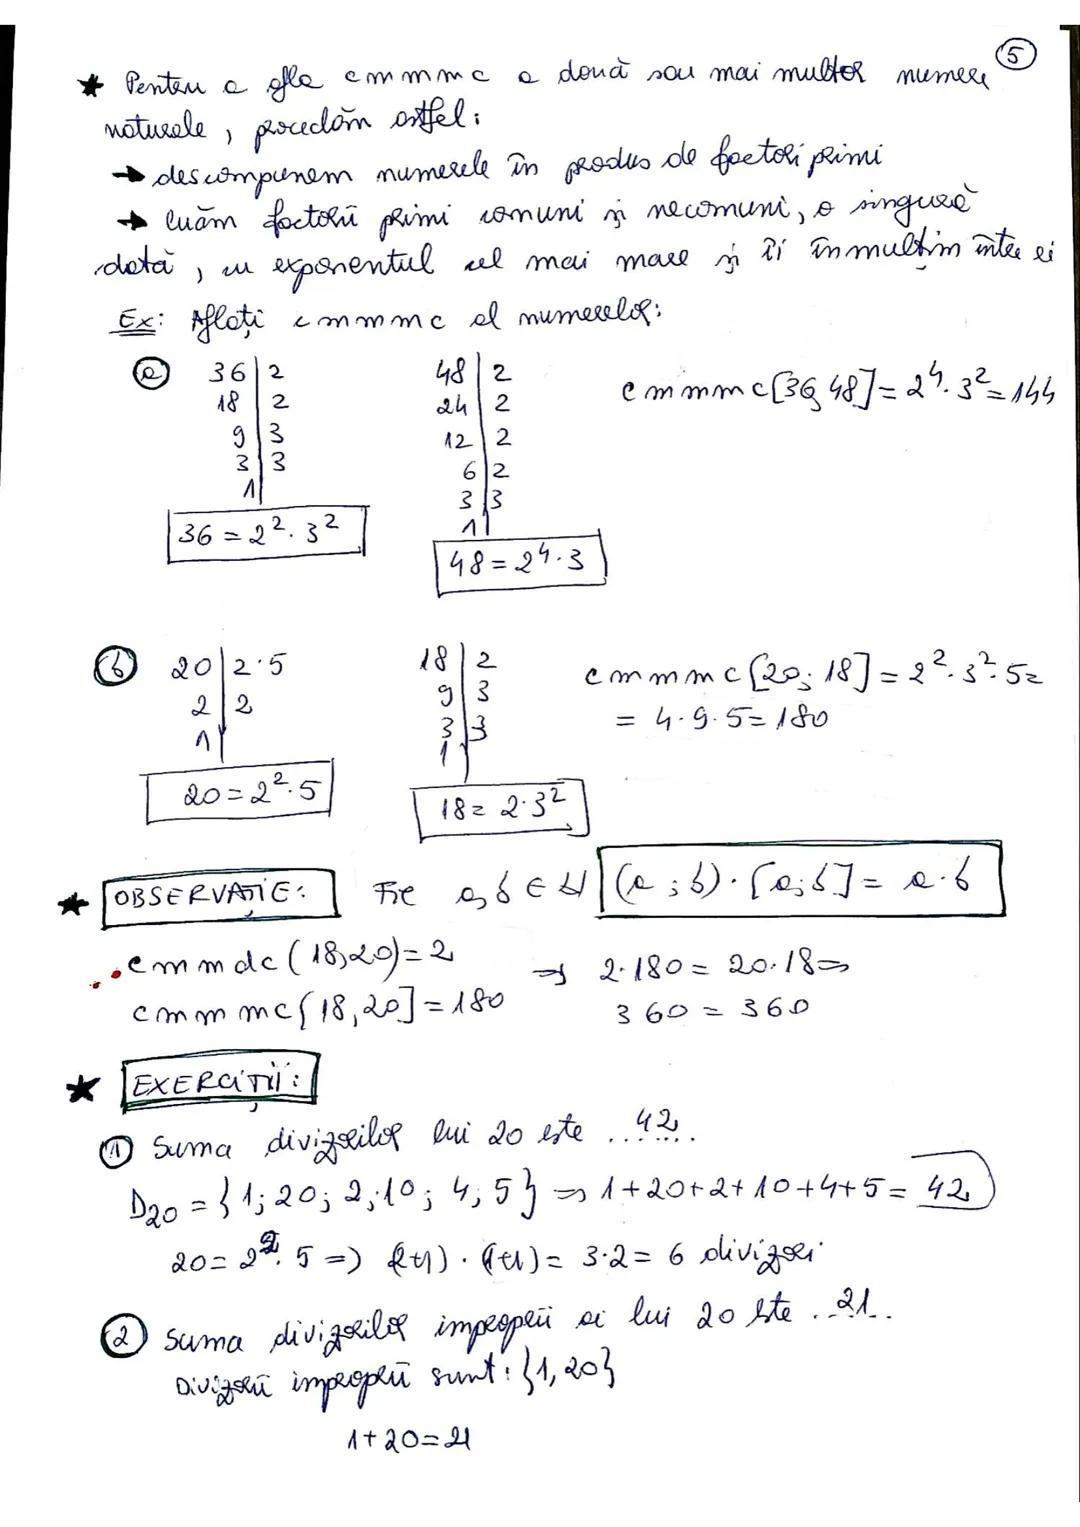 5
★ Pentru a afla cmmmc a două sau mai multor numere
naturale, procedăm astfel:
→ descompunem numerele în produs de factori primi
→ luăm factorii primi comuni și necomuni, o singură
dată, cu exponentul cel mai mare și îi înmulțim între ei
Ex: Aflați cmmmc al numerelor:
a) 36 | 2   48 | 2   cmmmc [36, 48] = 2⁴ · 3² = 144
18 | 2   24 | 2
9 | 3   12 | 2
3 | 3   6 | 2
1 |   3 | 3
1 |
36 = 2² · 3²   48 = 2⁴ · 3
b) 20 | 2·5   18 | 2   cmmmc [20; 18] = 2² · 3² · 5 =
2 | 2   9 | 3   = 4 · 9 · 5 = 180
1 |   3 | 3
1 |
20 = 2² · 5   18 = 2 · 3²
★ OBSERVAȚIE: Fie a, b ∈ ℕ (a ; b) · [a; b] = a · b
cmmdc (18, 20) = 2   ⇒ 2 · 180 = 20 · 18 ⇒
cmmmc [18, 20] = 180   360 = 360
★ EXERCIȚII:
1) Suma divizorilor lui 20 este ..42....
D20 = {1; 20; 2; 10; 4; 5} ⇒ 1+20+2+10+4+5 = 42
20 = 2² · 5 ⇒ (2+1) · (1+1) = 3 · 2 = 6 divizori
2) Suma divizorilor improprii ai lui 20 este ..21..
Divizorii improprii sunt: {1, 20}
1 + 20 = 21